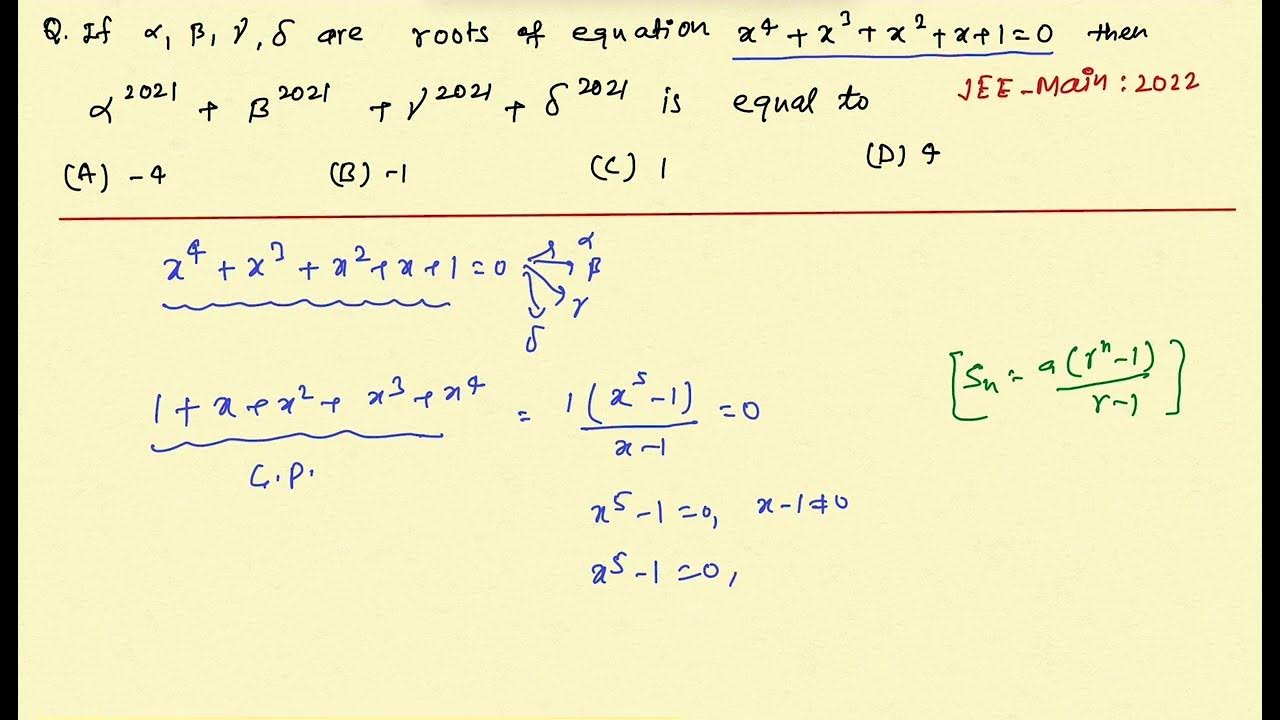 Q. If α, β, γ, δ are roots of equation x⁴ + x³ + x² + x + 1 = 0 then
α²⁰²¹ + β²⁰²¹ + γ²⁰²¹ + δ²⁰²¹ is equal to JEE-Main : 2022
(A) -4 (B) -1 (C) 1 (D) 4
x⁴ + x³ + x² + x + 1 = 0 α
β
γ
δ
1 + x + x² + x³ + x⁴ = 1(x⁵ - 1)/(x - 1) = 0 [Sₙ = a(rⁿ - 1)/(r - 1)]
G.P.
x⁵ - 1 = 0, x - 1 ≠ 0
x⁵ - 1 = 0,